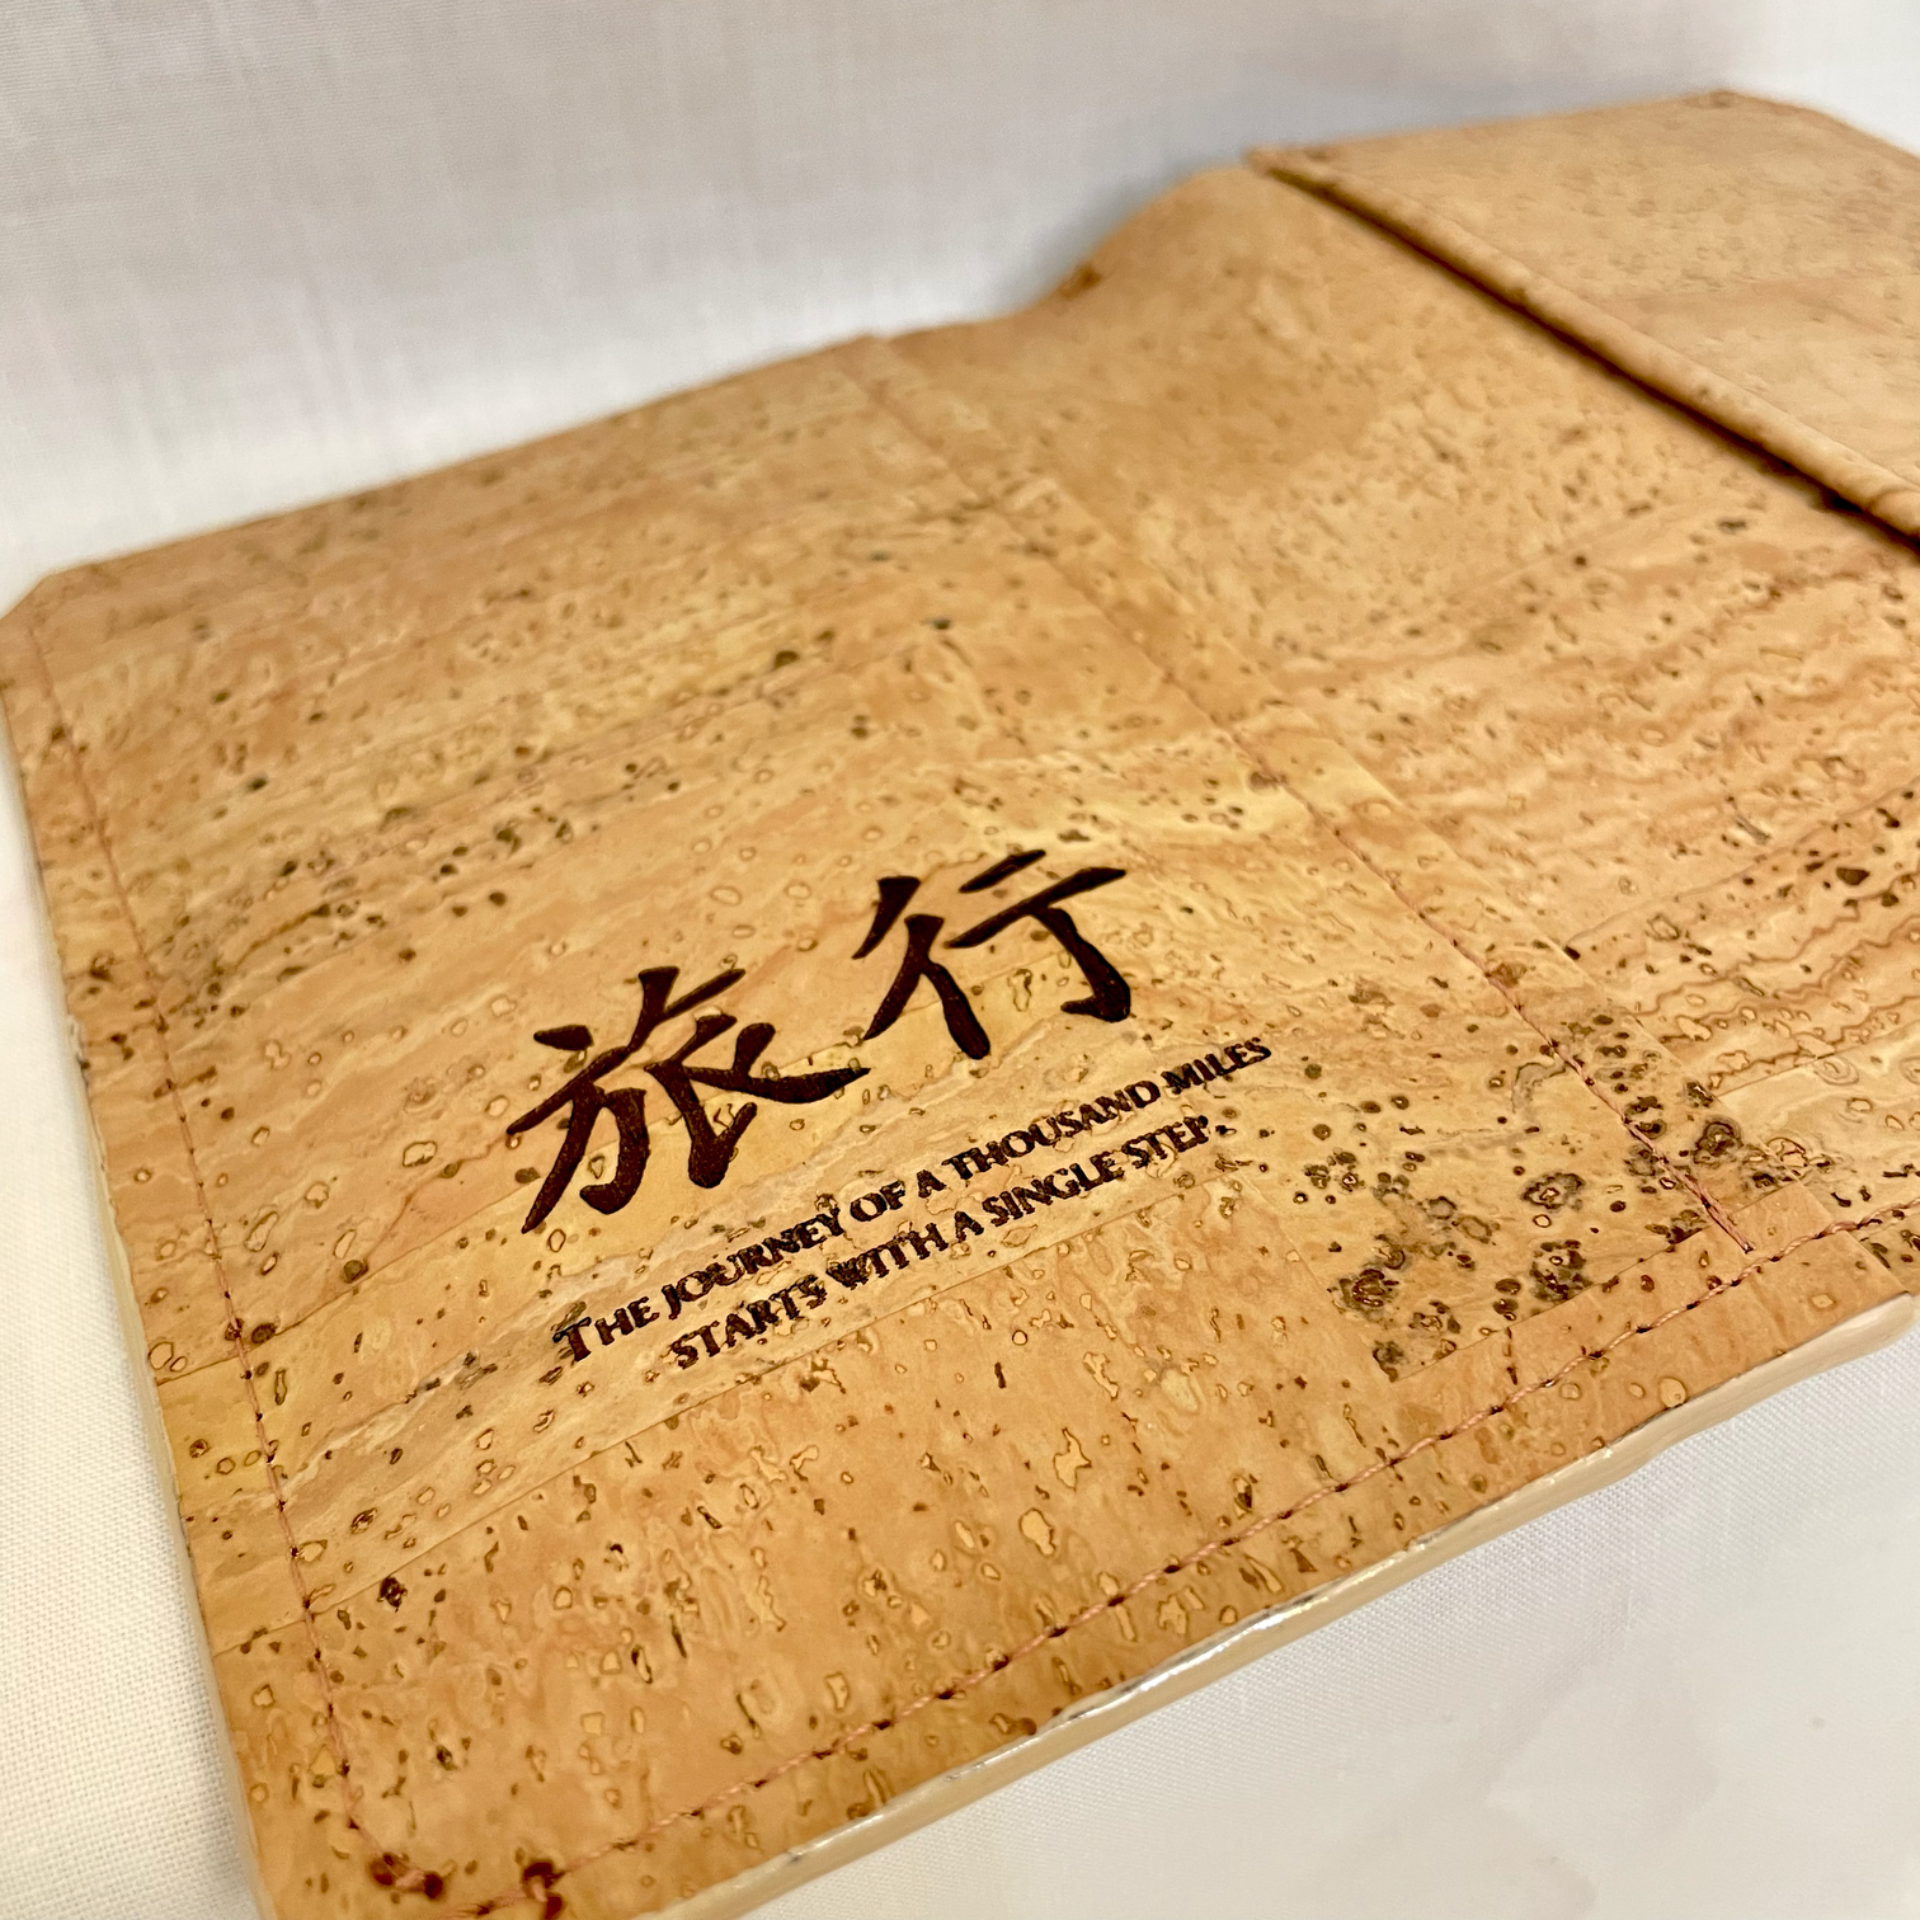 旅行
THE JOURNEY OF A THOUSAND MILES
STARTS WITH A SINGLE STEP.